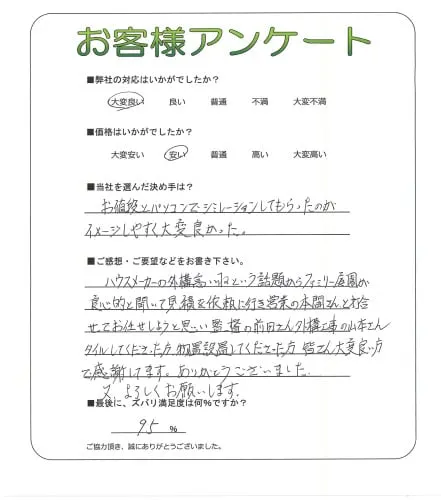 お客様アンケート
■弊社の対応はいかがでしたか?
大変良い 良い 普通 不満 大変不満
■価格はいかがでしたか?
大変安い 安い 普通 高い 大変高い
■当社を選んだ決め手は?
お値段とパソコンでシミレーションしてもらったのが
イメージしやすく大変良かった。
■ご感想・ご要望などをお書き下さい。
ハウスメーカーの外構高いねという話題からファミリー庭園が
良心的と聞いて見積を依頼に行き営業の本間さんと打合
せてお任せしようと思い監督の前田さん外構工事の山本さん
タイルしてくださった方 物置設置してくださった方 皆さん大変良い方
で感謝してます。ありがとうございました。
又、よろしくお願いします。
■最後に、ズバリ満足度は何%ですか?
95 %
ご協力頂き、誠にありがとうございました。